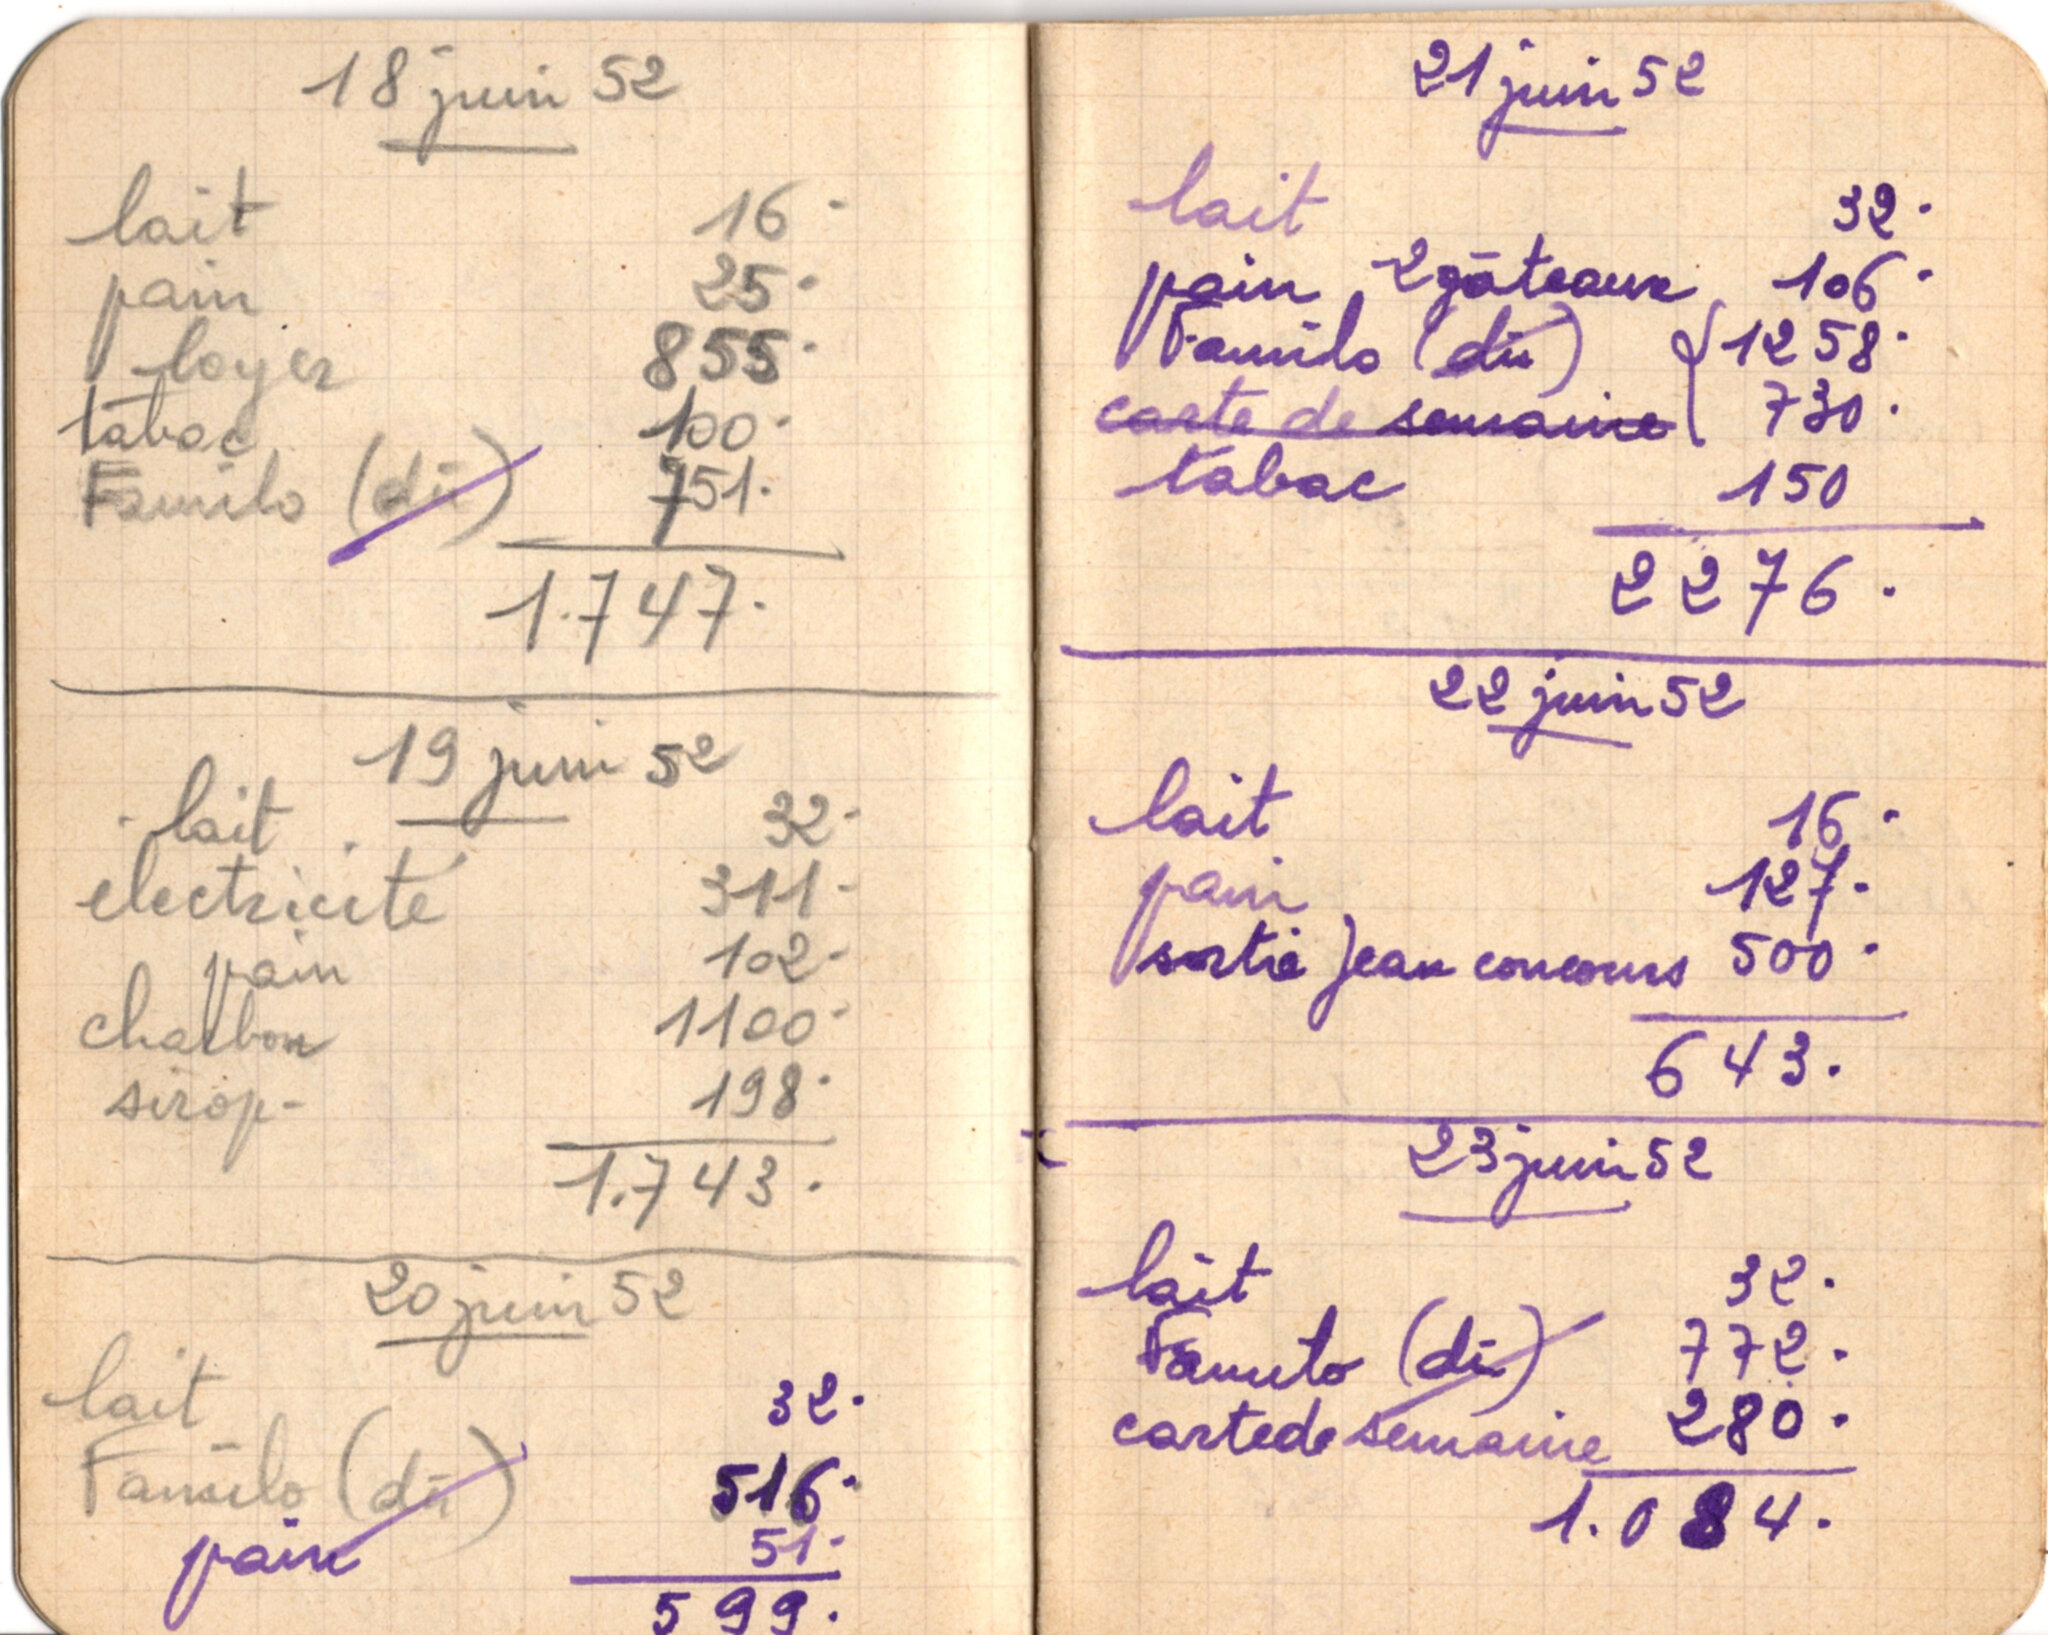 18 juin 52
lait 16.
pain 25.
loyer 855.
tabac 100.
Familo (dû) 751.
1.747.
19 juin 52
lait 32.
électricité 311.
pain 102.
charbon 1100.
sirop 198.
1.743.
20 juin 52
lait 32.
Familo (dû) 516.
pain 51.
599.
21 juin 52
lait 32.
pain 2 gâteaux 106.
Familo (dû) 1258.
carte de semaine 730.
tabac 150
2276.
22 juin 52
lait 16.
pain 127.
sortie Jean concours 500.
643.
23 juin 52
lait 32.
Familo (dû) 772.
carte de semaine 280.
1.084.